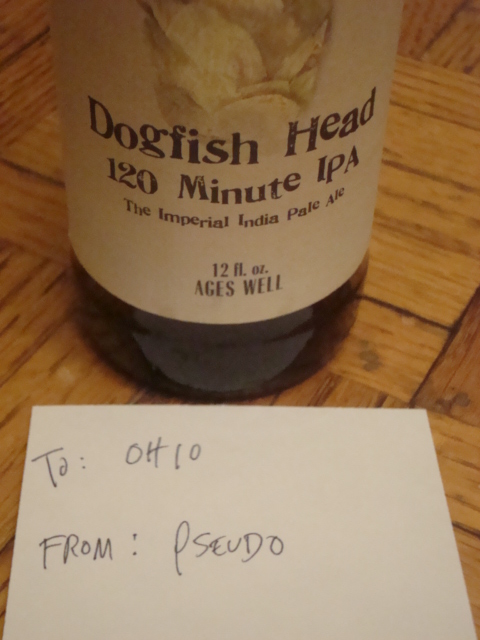 Dogfish Head
120 Minute IPA
The Imperial India Pale Ale
12 fl. oz.
AGES WELL
To: OHIO
FROM: PSEUDO